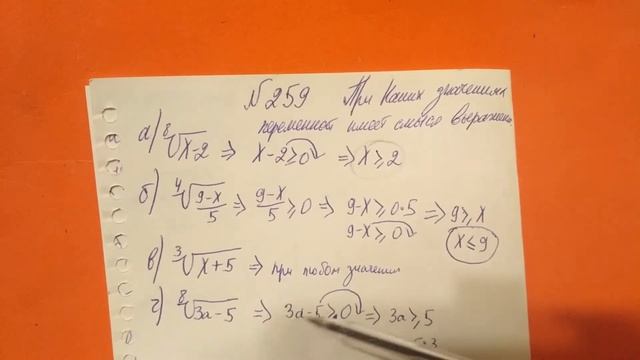 №259 При каких значениях
переменной имеет смысл выражение
а) ⁸√(x-2) ⇒ x-2≥0 ⇒ x≥2
б) ⁴√((9-x)/5) ⇒ (9-x)/5 ≥0 ⇒ 9-x≥0·5 ⇒ 9≥x
9-x≥0 x≤9
в) ³√(x+5) ⇒ при любом значении
г) ⁸√(3a-5) ⇒ 3a-5≥0 ⇒ 3a≥5